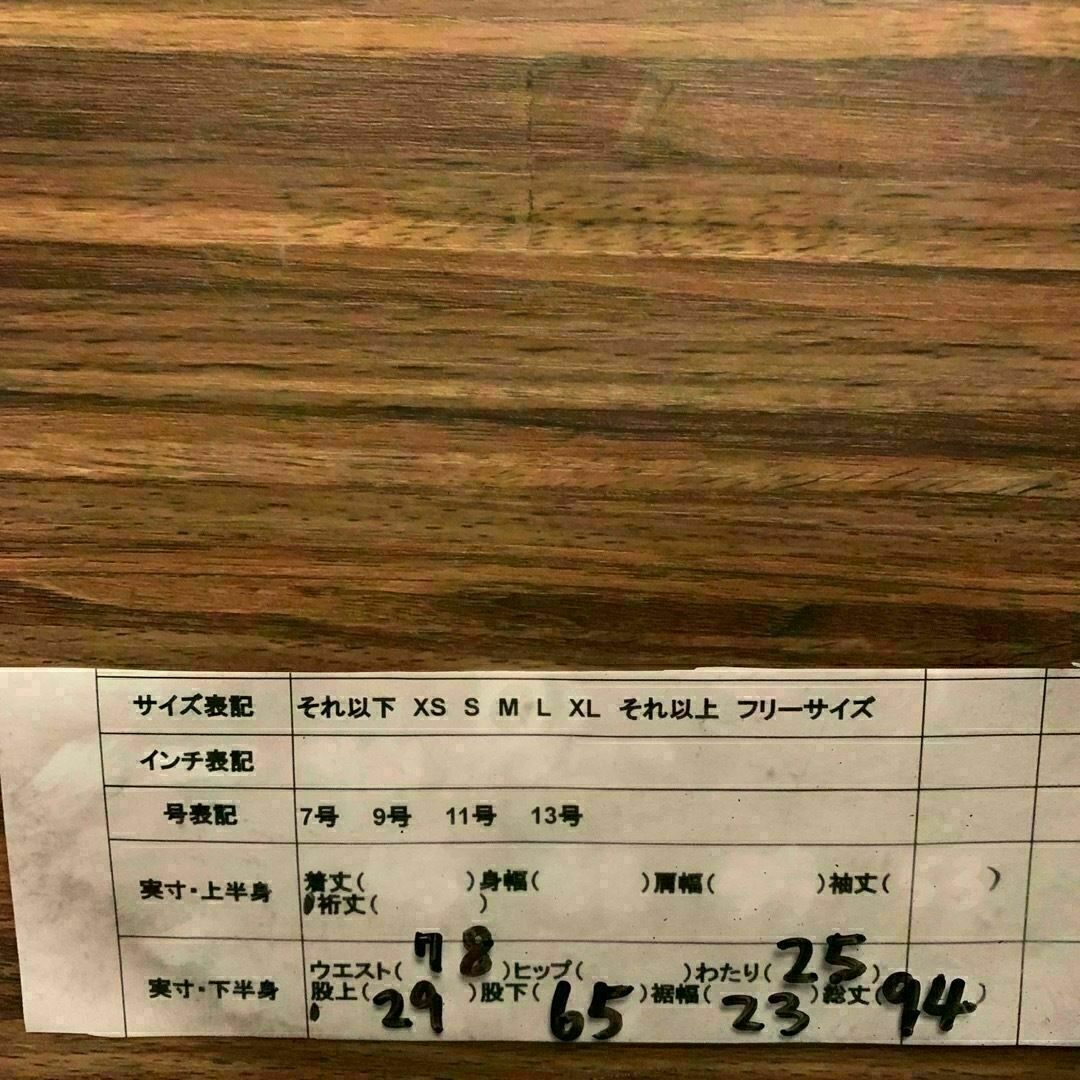 サイズ表記 それ以下 XS S M L XL それ以上 フリーサイズ
インチ表記
号表記 7号 9号 11号 13号
実寸・上半身 着丈( )身幅( )肩幅( )袖丈( )
裄丈( )
実寸・下半身 ウエスト( 78 )ヒップ( )わたり( 25 )
股上( 29 )股下( 65 )裾幅( 23 )総丈( 94 )